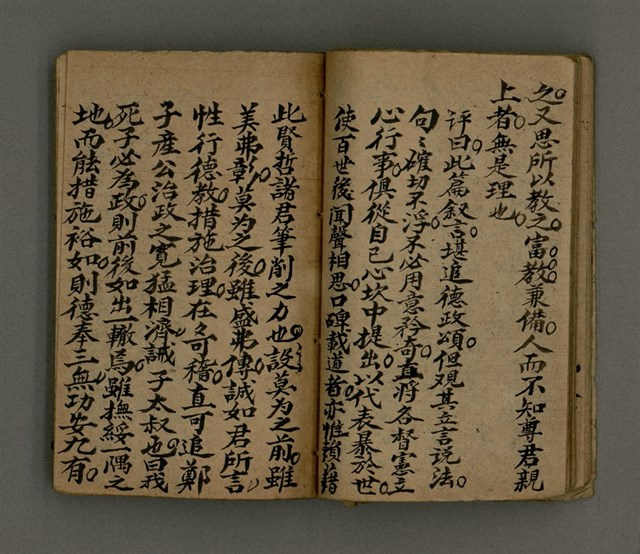 之又思所以教之富教兼備人而不知尊君親
上者無是理也
評曰此篇叙言堪追德政頌但观其立言說法
句〻確切不浮不必用意矜奇直將各督憲立
心行事俱從自己心坎中提出以代表暴於世
使百世後聞聲相思口碑載道者亦惟賴藉
此賢哲諸君筆削之力也設莫为之前雖
美弗彰莫为之後雖盛弗傳誠如君所言
性行德教措施治理在〻可稽直可追鄭
子產公治政之寬猛相濟誡子太叔也曰我
死子必為政則前後如出一轍焉雖撫綏一隅之
地而能措施裕如則德奉三無功安九有